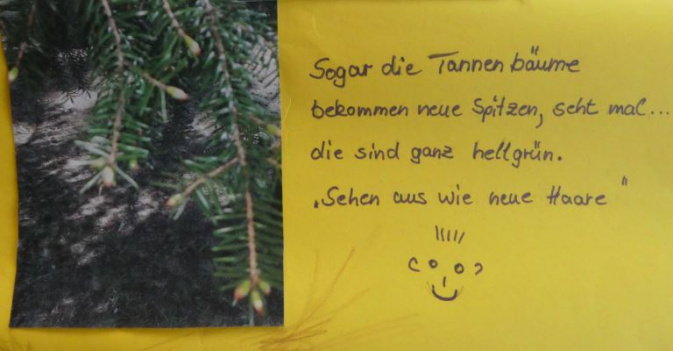 Sogar die Tannenbäume
bekommen neue Spitzen, seht mal...
die sind ganz hellgrün.
„Sehen aus wie neue Haare"